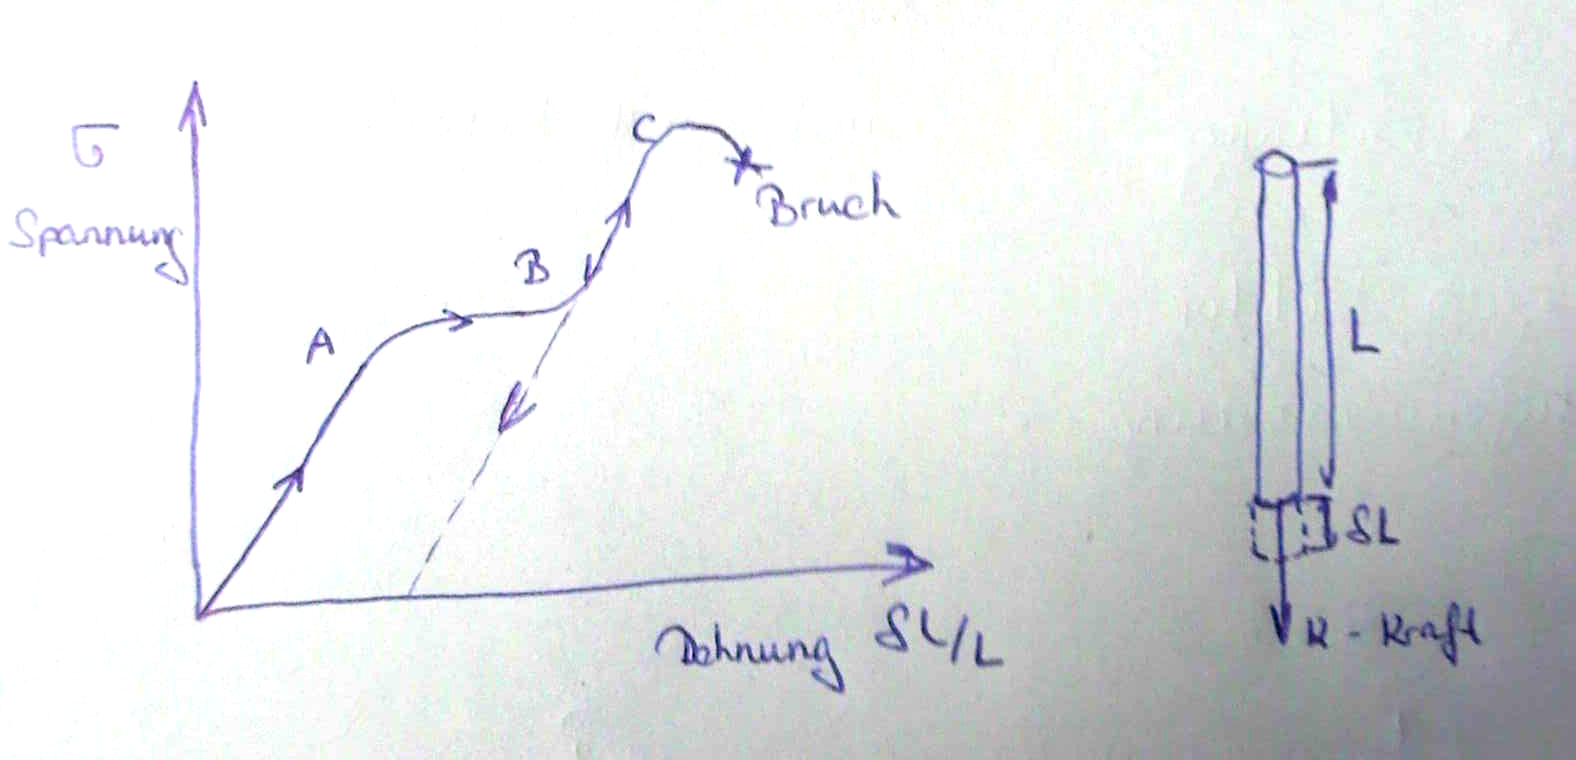 σ
Spannung
A
B
C
Bruch
Dehnung δL/L
L
δL
K - Kraft